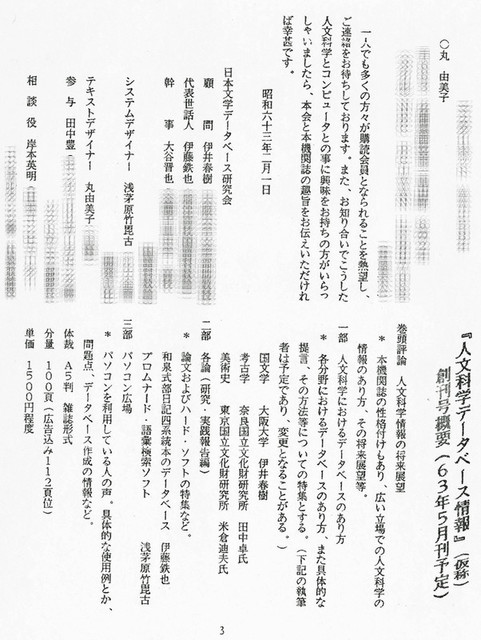 〇丸 由美子
一人でも多くの方々が購読会員となられることを熱望し、
ご連絡をお待ちしております。また、お知り合いでこうした
人文科学とコンピュータとの事に興味をお持ちの方がいらっ
しゃいましたら、本会と本機関誌の趣旨をお伝えいただけれ
ば幸甚です。
昭和六十三年二月一日
日本文学データベース研究会
顧問 伊井春樹
代表世話人 伊藤鉄也
幹事 大谷晋也
システムデザイナー 浅茅原竹毘古
テキストデザイナー 丸由美子
参与 田中豊
相談役 岸本英明
『人文科学データベース情報』(仮称)
創刊号概要(63年5月刊予定)
巻頭評論 人文科学情報の将来展望
* 本機関誌の性格付けもあり、広い立場での人文科学の
情報のあり方、その将来展望等。
一部 人文科学におけるデータベースのあり方
* 各分野におけるデータベースのあり方、また具体的な
提言、その方法等についての特集とする。(下記の執筆
者は予定であり、変更となることがある。)
国文学 大阪大学 伊井春樹
考古学 奈良国立文化財研究所 田中卓氏
美術史 東京国立文化財研究所 米倉迪夫氏
二部 各論(研究・実践報告編)
* 論文およびハード・ソフトの特集など。
和泉式部日記四系統本のデータベース 伊藤鉄也
プロムナード・語彙検索ソフト 浅茅原竹毘古
三部 パソコン広場
* パソコンを利用している人の声。具体的な使用例とか、
問題点、データベース作成の情報など。
体裁 A5判 雑誌形式
分量 100頁(広告込み112頁位)
単価 1500円程度
3